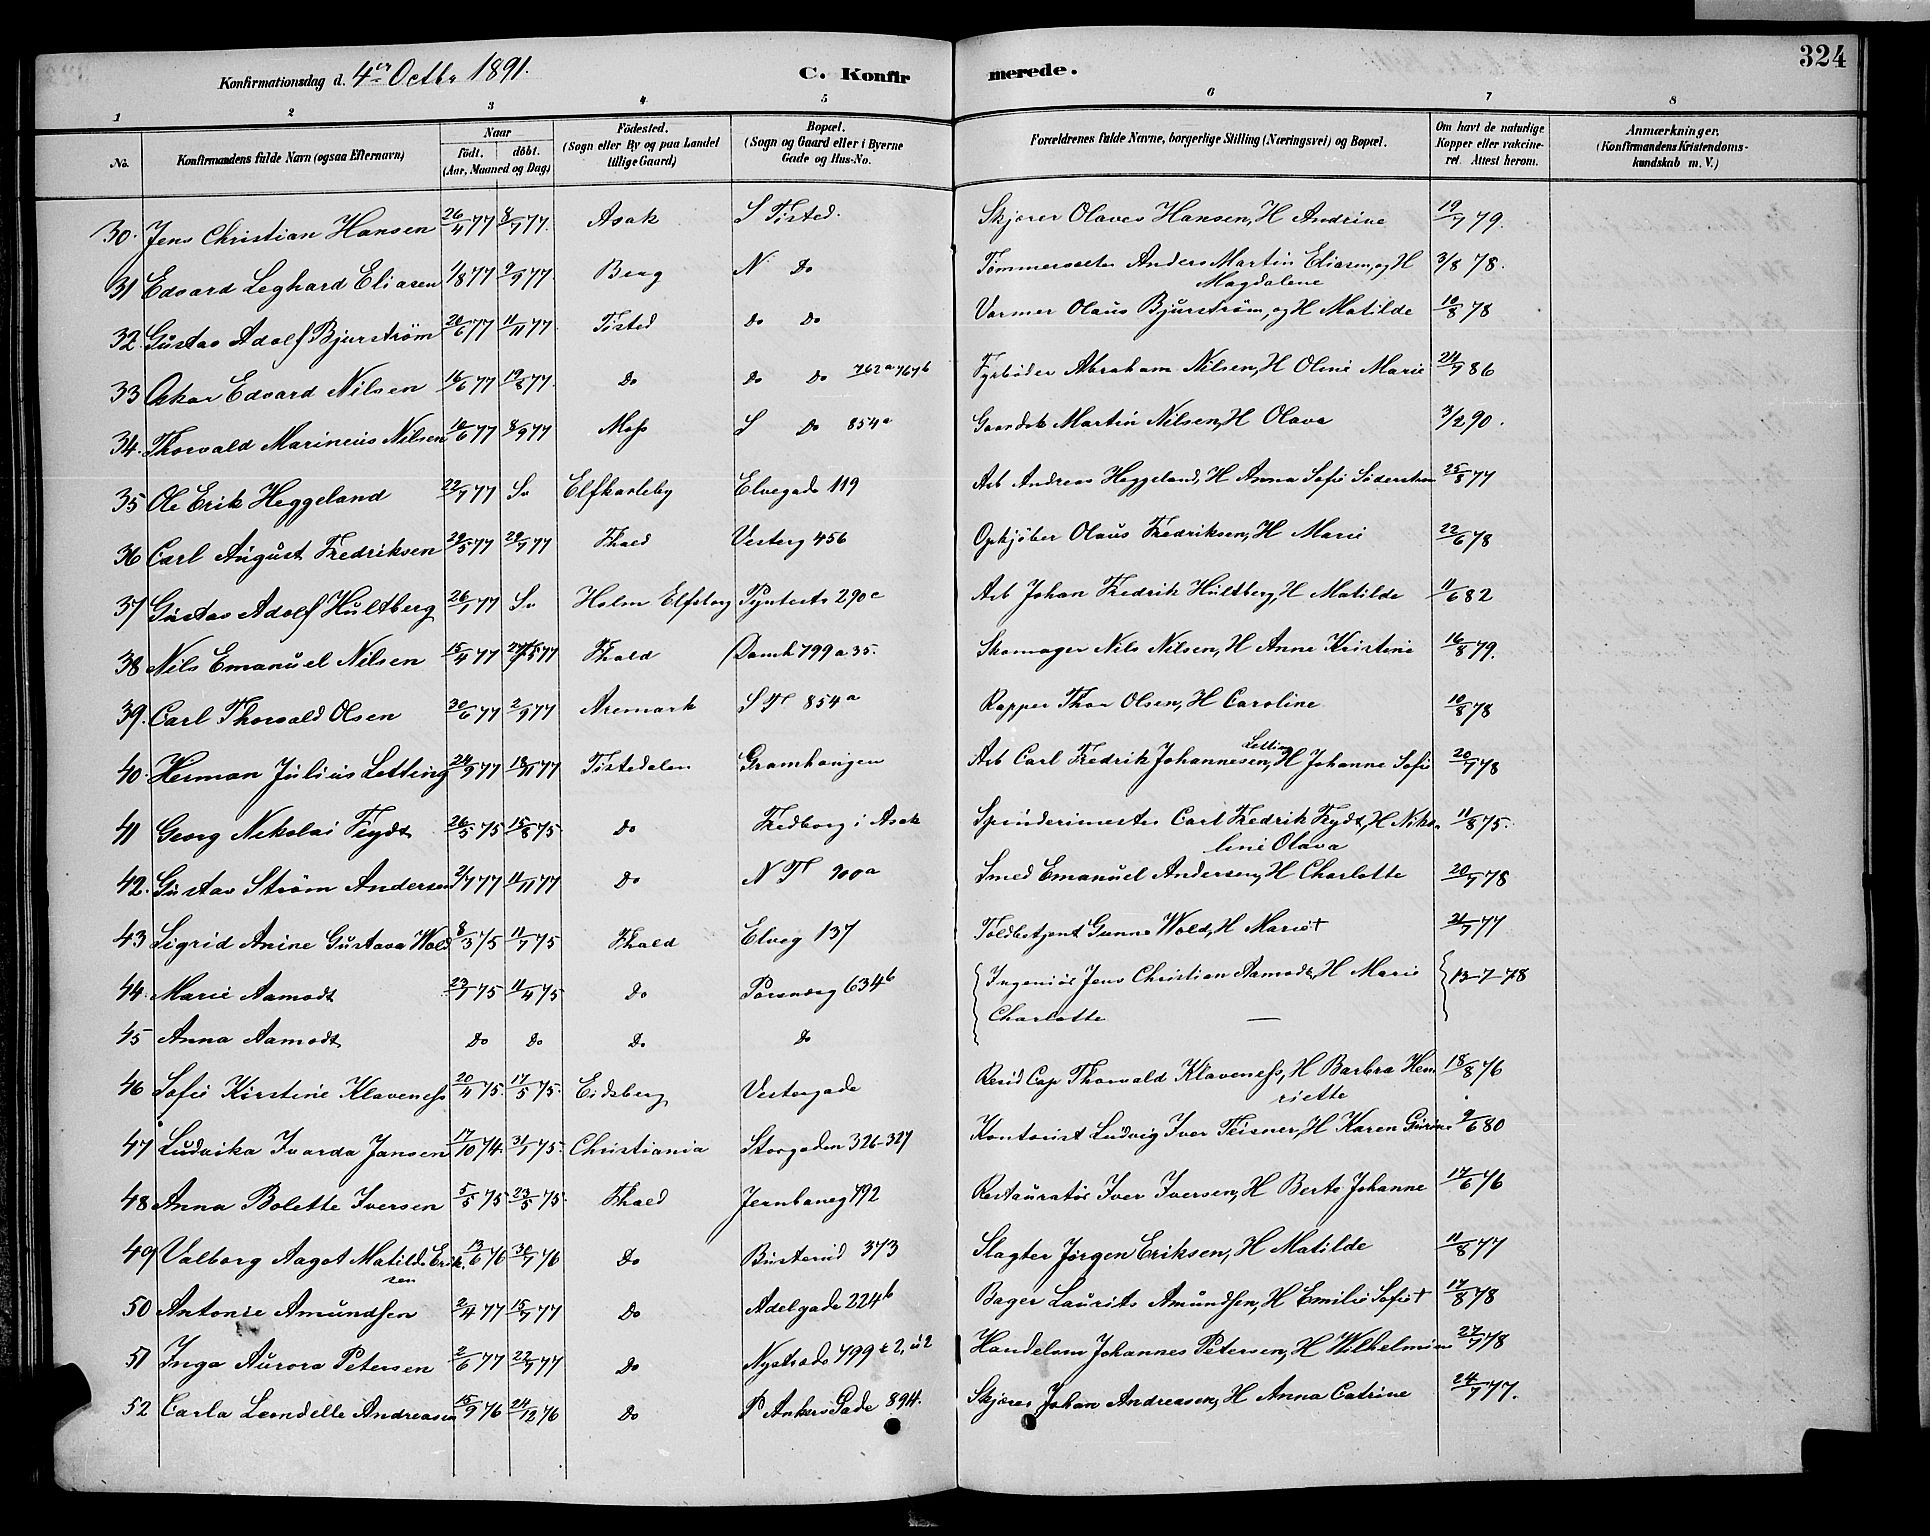 324
Konfirmationsdag d. 4de Octbr 1891.
C. Konfirmerede.
1 2 3 4 5 6 7 8
No. | Konfirmandens fulde Navn (ogsaa Efternavn) | Naar født. døbt. (Aar, Maaned og Dag) | Födested. (Sogn eller By og paa Landet tillige Gaard) | Bopæl. (Sogn og Gaard eller i Byerne Gade og Hus-No. | Forældrenes fulde Navne, borgerlige Stilling (Næringsvei) og Bopæl. | Om havt de naturlige Kopper eller vakcineret. Attest herom. | Anmærkninger. (Konfirmandens Kristendomskundskab m. V.)
30. Jens Christian Hansen 26/4 77 8/7 77. Asak S Tisted. Skjærer Olaves Hansen, H Andrine 19/7 79.
31 Edvard Leghard Eliasen 1/8 77 2/9 77. Berg N Do Tømmersætter Anders Martin Eliasen, og H Magdalene 3/8 78.
32. Gustav Adolf Bjurstrøm 20/6 77 11/11 77. Tisted Do Do Varmer Olaus Bjurstrøm, og H Matilde 10/8 78
33 Oskar Edvard Nilsen 16/6 77 19/8 77. Do Do Do 762a 767b Fyrbøder Abraham Nilsen, H Oline Marie 24/7 86
34. Thorvald Marinius Nilsen 16/6 77 8/9 77 Moss S Do 854a Gaardsk Martin Nilsen, H Olava 3/2 90.
35 Ole Erik Heggeland 22/7 77 Sv Elfkarleby Elvegade 119 Arb Andreas Heggeland, H Anna Sofie Söderstrøm 25/8 77
36 Carl August Fredriksen 29/5 77 29/7 77 Fhald Vesterg 456 Opkjøber Olaus Fredriksen, H Marie 22/6 78
37 Gustav Adolf Hultberg 26/1 77 Sv Holm Elfsborg Pyntestr 290c Arb Johan Fredrik Hultberg, H Matilde 11/6 82
38 Nils Emanuel Nilsen 15/4 77 Fhald Damh 799a 35. Skomager Nils Nilsen, H Anne Kristine 16/8 79.
39. Carl Thorvald Olsen 30/6 77 2/9 77 Aremark S Td 854a Rapper Thor Olsen, H Caroline 10/8 78
40. Herman Julius Letting 24/9 77 18/11 77 Tistedalen Gramhaugen Arb Carl Fredrik Johannesen Letting, H Johanne Sofie 20/7 78
41 Georg Nikolai Frydt 26/5 75 15/8 75 Do Fredborg i Asak Spinderimester Carl Fredrik Frydt, H Nikoline Olava 11/8 75.
42. Gustav Strøm Andersen 2/7 77 11/11 77 Do N Td 900a Smed Emanuel Andersen, H Charlotte 20/7 78
43 Sigrid Anine Gustava Wold 8/3 75 11/7 75 Fhald Elveg 137 Toldbetjent Gunne Wold, H Marie† 21/7 77
44. Marie Aamodt 23/1 75 11/4 75 Do Porsnæsg 634b Ingeniør Jens Christian Aamodt, H Marie Charlotte 13-7-78
45 Anna Aamodt Do Do Do Do —
46 Sofie Kirstine Klaveness 20/4 75. 17/5 75. Eidsberg Vestergade Resid Cap Thorvald Klaveness, H Barbra Henriette 18/8 76
47 Ludvika Ivarda Jansen 17/10 74. 31/1 75. Christiania Storgaden 326-327 Kontorist Ludvig Iver Teisner, H Karen Gurine 9/6 80
48 Anna Bolette Iversen 5/5 75 23/5 75. Fhald Jernbaneg 792 Restauratør Iver Iversen, H Berte Johanne 17/6 76
49 Valborg Aagot Matilde Eriksen 13/6 76 30/7 76 Do Busterud 373 Slagter Jørgen Eriksen, H Matilde 11/8 77
50 Antonie Amundsen 2/4 77 15/7 77 Do Adelgade 224b Bager Laurits Amundsen, H Emilie Sofie† 17/8 78
51 Inga Aurora Petersen 2/6 77 22/7 77 Do Nystræde 499 Handelsm Johannes Petersen, H Wilhelmine 27/7 78
52 Carla Leondelle Andreasen 15/9 76 24/12 76 Do P Ankers Gade 894. Skjærer Johan Andreasen, H Anna Catrine 24/7 77.